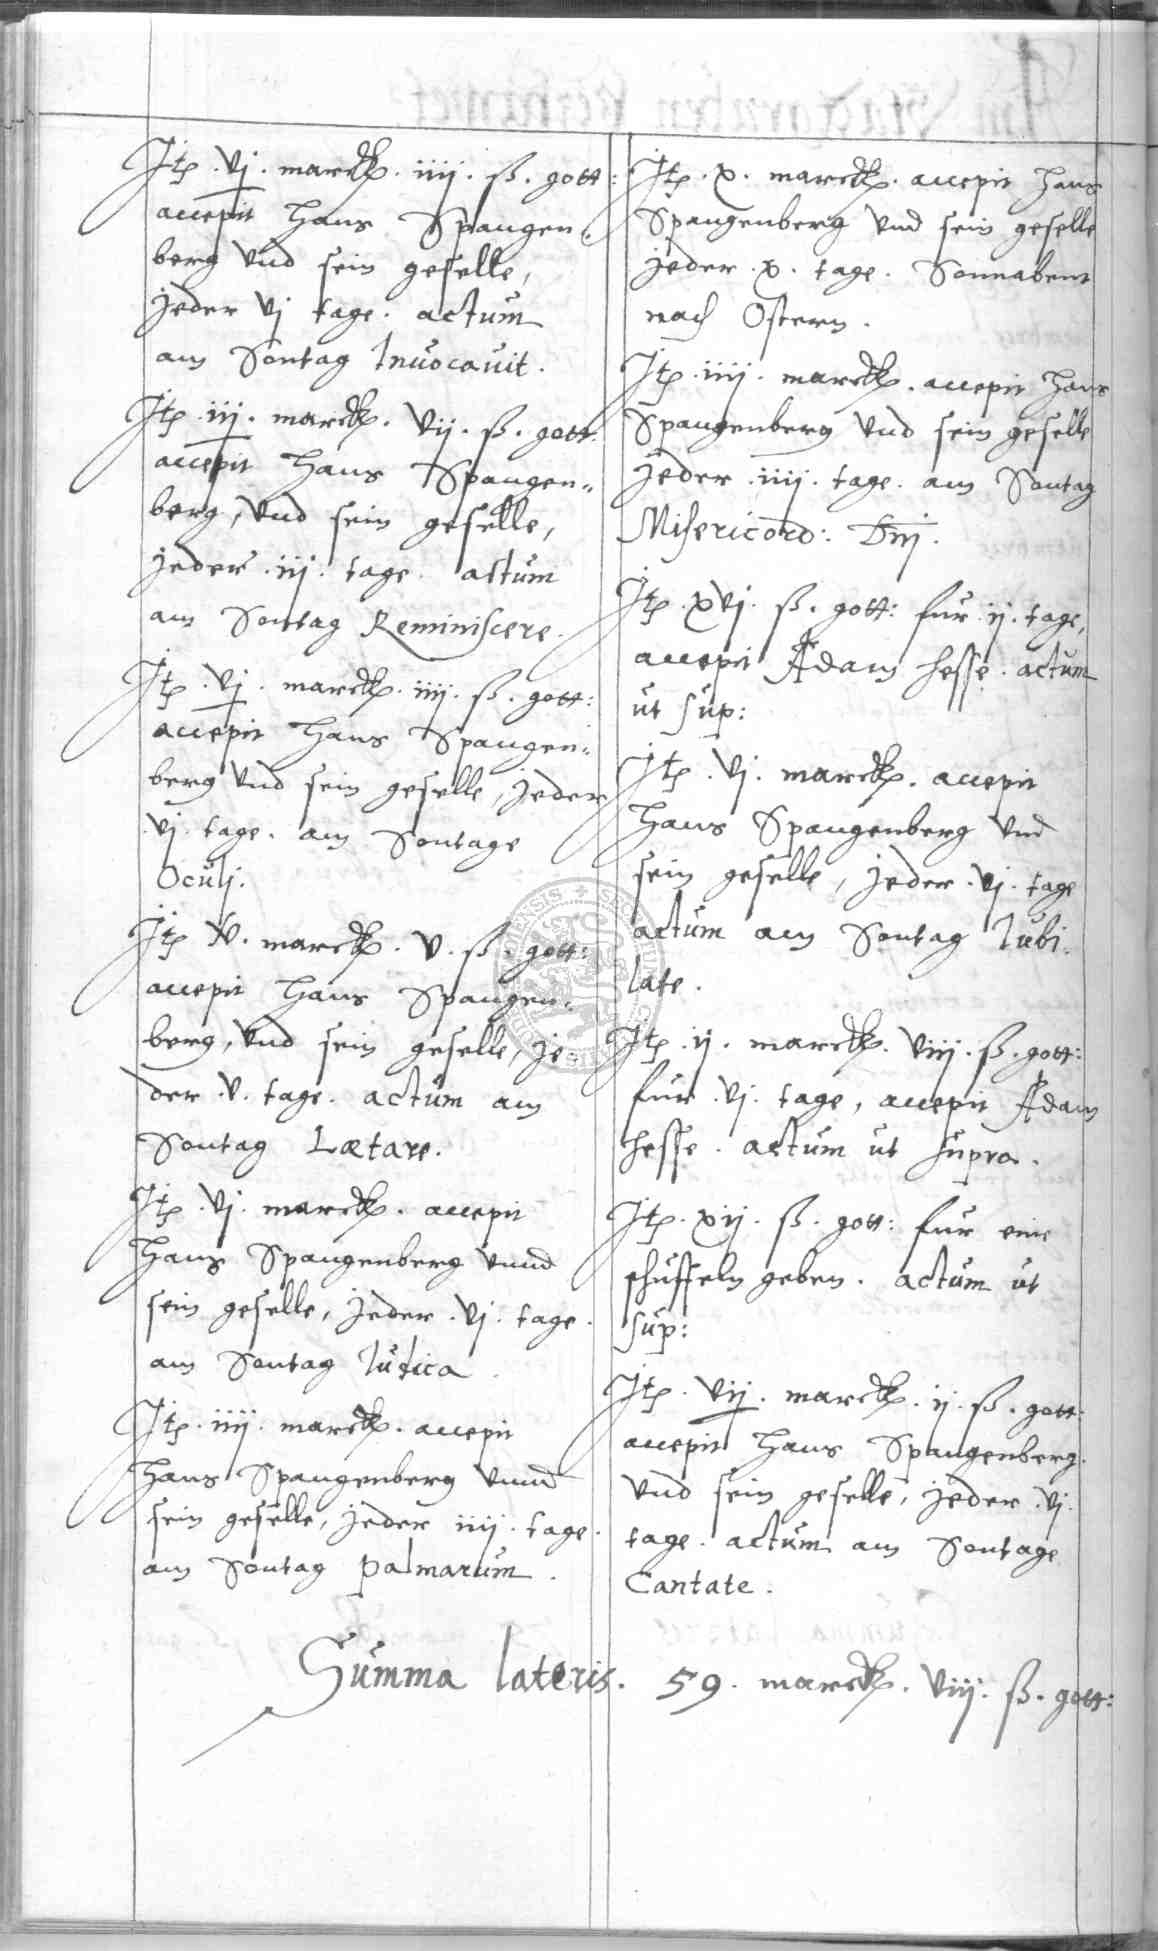 Itē. vj. marck. iiij. ß. gott:
accepit Hans Spangen-
berg vnd sein geselle,
jeder vj tage. actum
am Sontag Inuocauit.
Itē. iij. marck. vij. ß. gott.
accepit Hans Spangen-
berg, vnd sein geselle,
jeder. iij. tage. actum
am Sontag Reminiscere.
Itē. vj. marck. iiij. ß. gott:
accepit Hans Spangen-
berg vnd sein geselle, jeder
vj. tage. am Sontage
Oculj.
Itē v. marck. v. ß. gott:
accepit Hans Spangen-
berg, vnd sein geselle, je
der. v. tage. actum am
Sontag Lætare.
Itē. vj. marck. accepit
Hans Spangenberg vnnd
sein geselle, jeder. vj. tage.
am Sontag Iudica.
Itē. iiij. marck. accepit
Hans Spangenberg vnnd
sein geselle, jeder iiij. tage.
am Sontag palmarum.
Itē. x. marck. accepit Hans
Spangenberg vnd sein geselle
jeder. x. tage. Sonnabent
nach Ostern.
Itē. iiij. marck. accepit Hans
Spangenberg vnd sein geselle
jeder. iiij. tage. am Sontag
Misericord: Dnj.
Itē. xvj. ß. gott: fur. ij. tage,
accepit Adam Hesse. actum
ut sup:
Itē. vj. marck. accepit
Hans Spangenberg vnd
sein geselle, jeder. vj. tage
actum am Sontag Iubi.
late.
Itē. ij. marck. viij. ß. gott:
fur. vj. tage, accepit Adam
Hesse. actum ut supra.
Itē. xij. ß. gott: fur eine
schuffeln geben. actum ut
sup:
Itē. vij. marck. ij. ß. gott:
accepit Hans Spangenberg.
vnd sein geselle, jeder. vj.
tage. actum am Sontage
Cantate.
Summa lateris. 59. marck. viij. ß. gott: